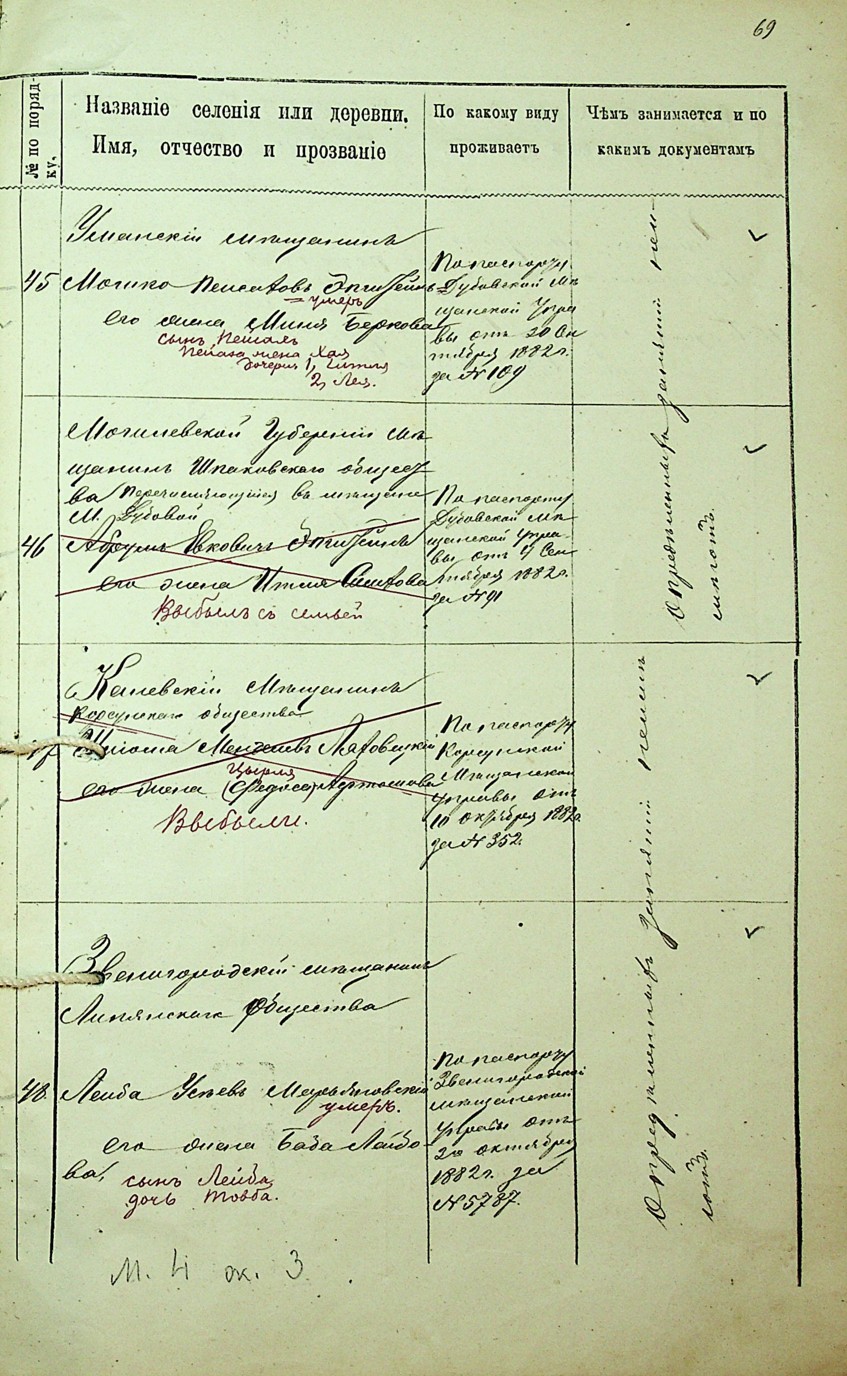 69
№ по поряд-
ку.
Названіе селенія или деревни.
Имя, отчество и прозваніе
По какому виду
проживаетъ
Чѣмъ занимается и по
какимъ документамъ
Уманскій мѣщанинъ
45 Мошко Пейсаховъ Эпштейнъ
= умеръ
его жена Миня Беркова
сынъ
жена Хая
дочери 1,
2, Лея.
По паспорту
Дубовской Мѣ
щанской Упра
вы отъ 20 Сен
тября 1882 г.
за № 109
Могилевской Губерніи мѣ
щанинъ Шкловскаго общест
ва перечисляющійся въ мѣщане
М. Дубовой
46 Абрумъ Ицковичъ Эпштейнъ
его жена
Выбылъ съ семьей
По паспорту
Дубовской мѣ
щанской упра-
вы отъ 4 Сен
тября 1882 г.
за № 91
Каневскій Мѣщанинъ
Корсунскаго общества
его жена
Выбыли.
По паспорту
Корсунской
Мѣщанской
управы отъ
10 октября 1882 г.
за № 352.
Звенигородскій мѣщанинъ
Общества
48. Лейба
умеръ.
его жена Баба Лейбо-
ва,
сынъ Лейба,
дочь Товба.
По паспорту
Звенигородской
мѣщанской
управы отъ
20 октября
1882 г. за
№ 5787.
Опредѣленныхъ занятій неим-
ѣютъ.
Опредѣленныхъ занятій неимѣ
ютъ.
М. 4 ж. 3